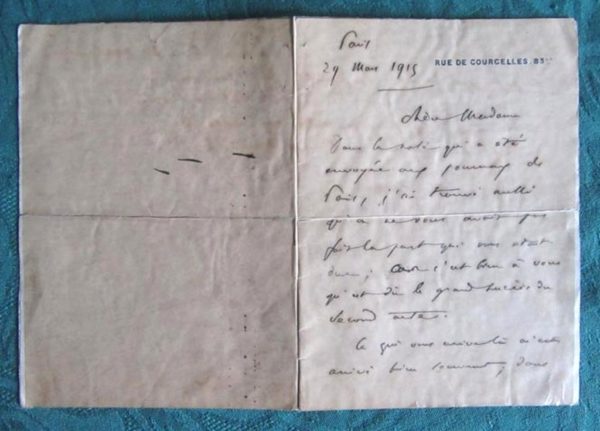 Paris
29 Mars 1915
RUE DE COURCELLES. 83
Chère Madame
Dans la note qui a été
envoyée aux journaux de
Paris, j'ai trouvé
qu'on ne vous avait pas
fait la part qui vous était
due; car c'est bien à vous
qu'est dû le grand succès du
second acte.
Ce qui vous arrive là m'est
arrivé bien souvent, dans